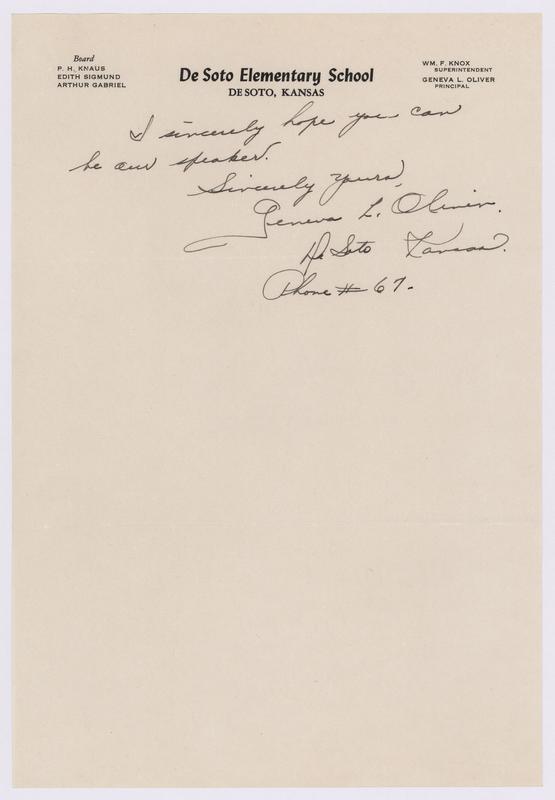 Board
P. H. KNAUS
EDITH SIGMUND
ARTHUR GABRIEL
De Soto Elementary School
DE SOTO, KANSAS
WM. F. KNOX
SUPERINTENDENT
GENEVA L. OLIVER
PRINCIPAL
I sincerely hope you can
be our speaker.
Sincerely Yours,
Geneva L. Oliver.
De Soto Kansas.
Phone # 67.